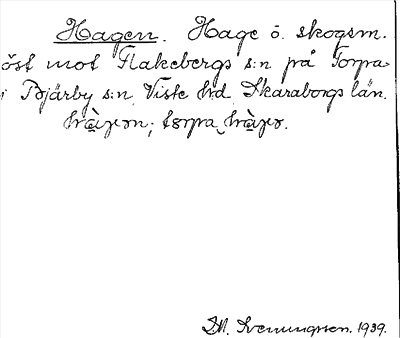 Hagen. Hage o. skogsm.
öst mot Flakebergs s:n på Torpa
i Bjärby s:n, Viste hd, Skaraborgs län.
M. Svenungsson. 1939.